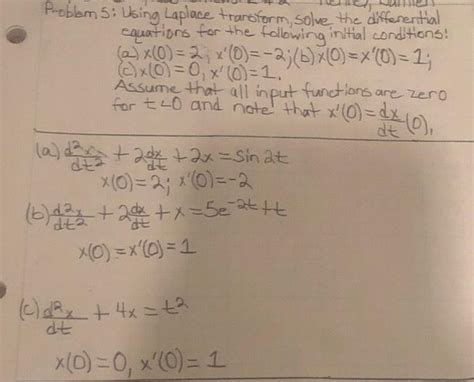 Problem 5: Using Laplace transform, solve the differential
equations for the following initial conditions:
(a) x(0) = 2; x'(0) = -2; (b) x(0) = x'(0) = 1;
(c) x(0) = 0, x'(0) = 1.
Assume that all input functions are zero
for t<0 and note that x'(0) = dx/dt (0).
(a) d²x/dt² + 2dx/dt + 2x = sin2t
x(0) = 2; x'(0) = -2
(b) d²x/dt² + 2dx/dt + x = 5e^-2t + t
x(0) = x'(0) = 1
(c) d²x/dt + 4x = t²
x(0) = 0, x'(0) = 1